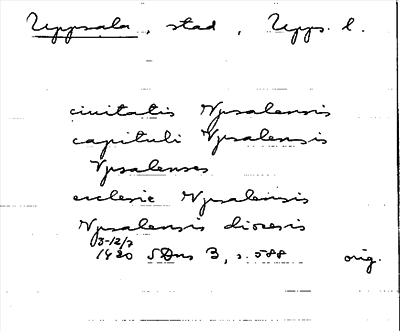 Uppsala, stad, Upps. l.
ciuitatis Vpsalensis
capituli Vpsalensis
Vpsalenses
ecclesie Vpsalensis
Vpsalensis diocesis
1420 SDns 3, s. 588 orig.